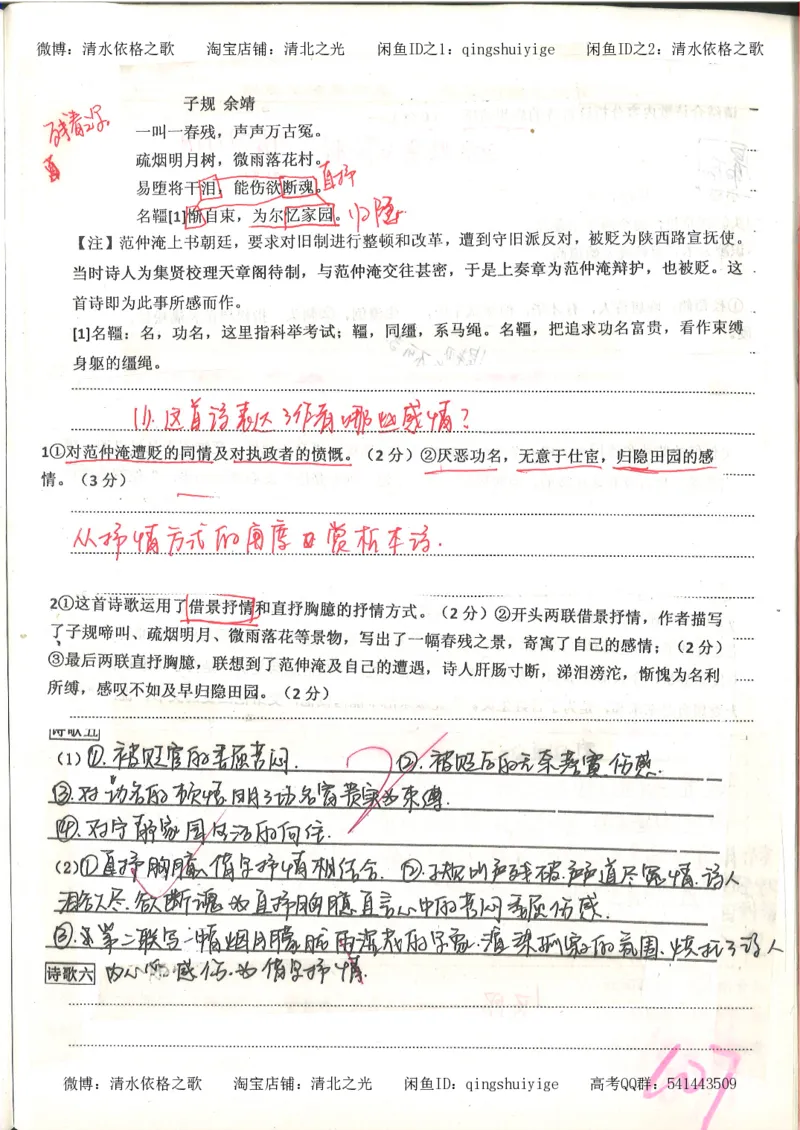 微博：清水依格之歌 淘宝店铺：清北之光 闲鱼ID之1：qingshuiyige 闲鱼ID之2：清水依格之歌
子规 余靖
一叫一春残，声声万古冤。
疏烟明月树，微雨落花村。
易堕将干泪，能伤欲断魂。直抒
名韁[1]惭自束，为尔忆家园。归隐
【注】范仲淹上书朝廷，要求对旧制进行整顿和改革，遭到守旧派反对，被贬为陕西路宣抚使。
当时诗人为集贤校理天章阁待制，与范仲淹交往甚密，于是上奏章为范仲淹辩护，也被贬。这
首诗即为此事所感而作。
[1]名韁：名，功名，这里指科举考试；韁，同缰，系马绳。名韁，把追求功名富贵，看作束缚
身躯的缰绳。
11.这首诗表达了作者哪些感情？
1①对范仲淹遭贬的同情及对执政者的愤慨。（2分）②厌恶功名，无意于仕宦，归隐田园的感
情。（3分）
从抒情方式的角度 赏析本诗.
2①这首诗歌运用了借景抒情和直抒胸臆的抒情方式。（2分）②开头两联借景抒情，作者描写
了子规啼叫、疏烟明月、微雨落花等景物，写出了一幅春残之景，寄寓了自己的感情；（2分）
③最后两联直抒胸臆，联想到了范仲淹及自己的遭遇，诗人肝肠寸断，涕泪滂沱，惭愧为名利
所缚，感叹不如及早归隐田园。（2分）
诗歌五
(1)①.被贬官的委屈苦闷. ②.被贬后的无奈 伤感.
③.对功名的 悔.明了功名富贵实为束缚.
④.对宁静家园生活的向往.
(2)①直抒胸臆、借景抒情相结合. ②.子规叫声残破.声声道尽冤情.诗人
泪 尽.欲断魂.为直抒胸臆.直言心中的苦闷委屈伤感.
③.第二联写 烟月朦胧雨落花的景象.渲染 的氛围.烘托了诗人
诗歌六 内心 感伤.为借景抒情.
微博：清水依格之歌 淘宝店铺：清北之光 闲鱼ID：qingshuiyige 高考QQ群：541443509